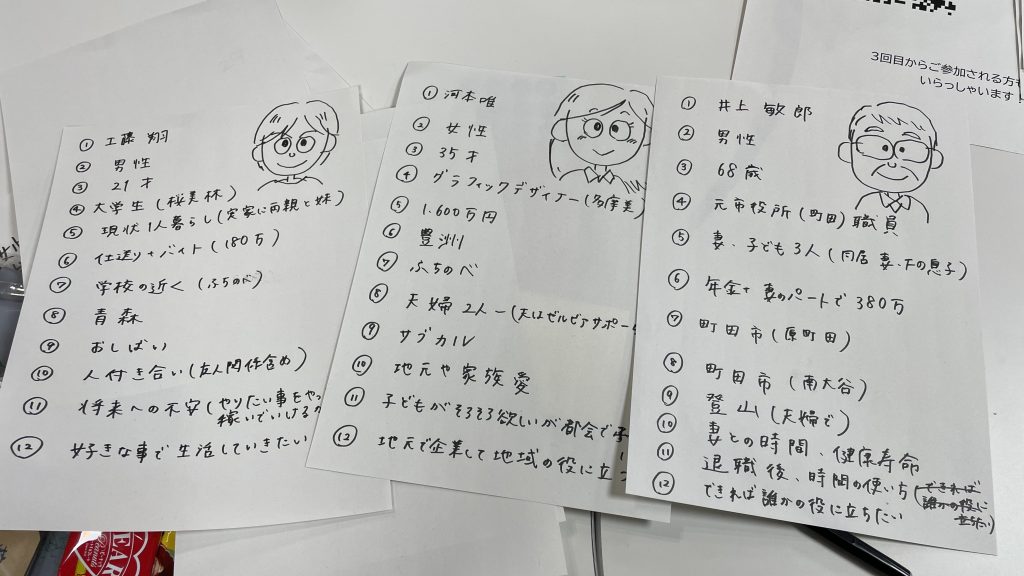 3回目からご参加される方も
いらっしゃいます!
① 工藤 翔
② 男性
③ 21才
④ 大学生(桜美林)
⑤ 現状1人暮らし(実家に両親と妹)
⑥ 仕送り+バイト(180万)
⑦ 学校の近く(ふちのべ)
⑧ 青森
⑨ おしばい
⑩ 人付き合い(友人関係含め)
⑪ 将来への不安(やりたい事をやっ
稼いでいけるか
⑫ 好きな事で生活していきたい
① 河本唯
② 女性
③ 35才
④ グラフィックデザイナー(多摩美)
⑤ 1.600万円
⑥ 豊洲
⑦ ふちのべ
⑧ 夫婦2人ー(夫はゼルビアサポー
⑨ サブカル
⑩ 地元や家族愛
⑪ 子どもがそろそろ欲しいが都会で子
⑫ 地元で企業して地域の役に立つ
① 井上敏郎
② 男性
③ 68歳
④ 元市役所(町田)職員
⑤ 妻・子ども3人(同居 妻・下の息子)
⑥ 年金+妻のパートで380万
⑦ 町田市(原町田)
⑧ 町田市(南大谷)
⑨ 登山(夫婦で)
⑩ 妻との時間、健康寿命
⑪ 退職後、時間の使い方(できれば
誰かの役に
立ちたい)
⑫ できれば誰かの役に立ちたい
EAR